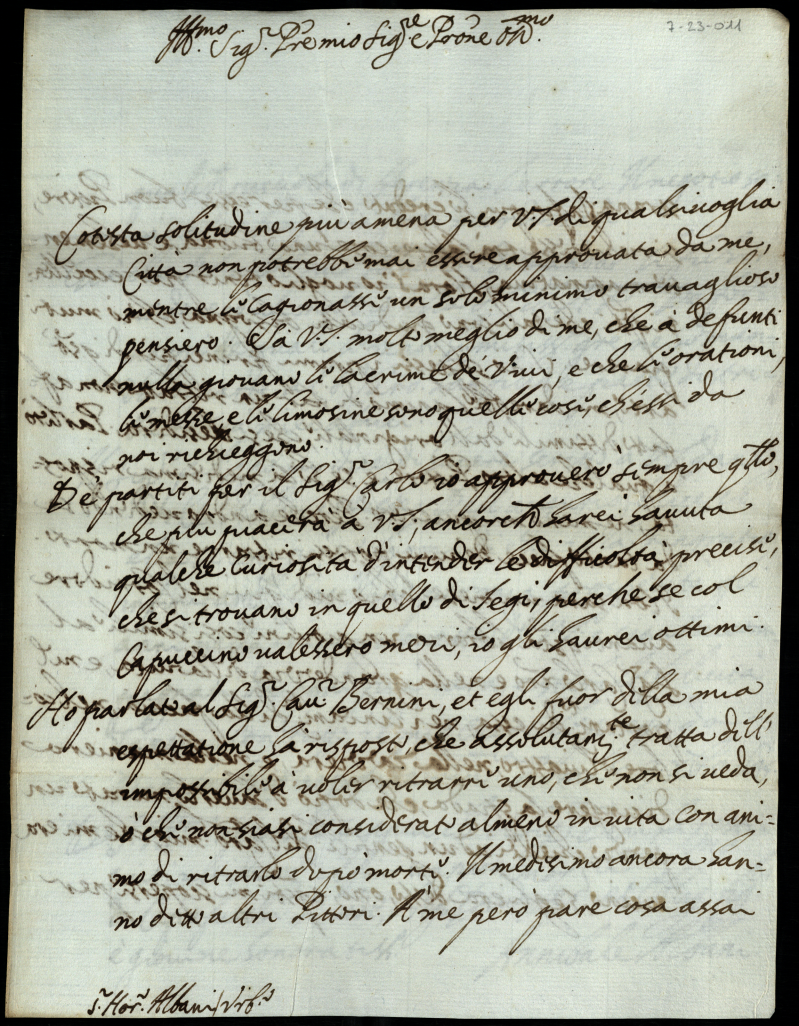 7-23-011
Ill.mo Sig.r P.re mio Sig.re e P̃rone Oss.mo
Cotesta solitudine più amena per V.S. di qualsivoglia
Città non potrebbe mai essere approvata da me,
mentre le cagionasse un solo minimo travaglioso
pensiero. Sà V.S. molto meglio di me, che à defunti
nulla giovano le lacrime de' Vivi, e che le orationi,
le messe, e le limosine sono quelle cose, ch'essi da
noi richieggono.
De' partiti per il Sig.r Carlo io approverò sempre q.llo,
che più piacerà à V.S., ancorche harei havuta
qualche curiosità d'intender le difficoltà precise,
che si trovano in quello di Iegi; perche se col
Capuccino valessero mezi, io gli haurei ottimi.
Hò parlato al Sig.r Cau.r Bernini, et egli fuor della mia
espettatione hà risposto, che assolutam.te tratta dell'
impossibile à voler ritrarre uno, che non si veda,
ò che non siasi considerato almeno in vita con ani-
mo di ritrarlo dopo morte. Il medesimo ancora han-
no detto altri Pittori. A' me però pare cosa assai
S.r Hor.o Albani / Urb.o